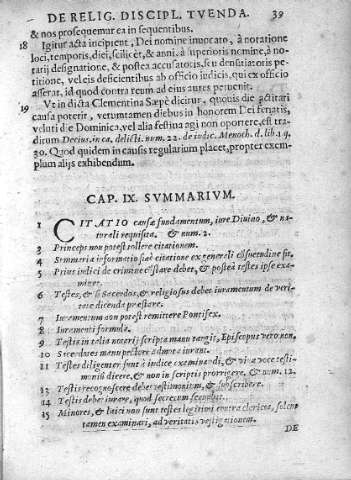 DE RELIG. DISCIPL. TVENDA. 39
& nos prosequemur ea in sequentibus.
18 Igitur acta incipient, Dei nomine inuocato, à notatione
loci, temporis, diei, scilicet, & anni. à superioris nomine, à no-
tarij designatione, & postea accusatoris, seu denūtiatoris pe-
titione, vel eis deficientibus ab officio iudicis, qui ex officio
asserat, id quod contra reum ad eius aures peruenit.
19 Vt in dicta Clementina Sæpè dicitur, quouis die actitari
causa poterit, verumtamen diebus in honorem Dei feriatis,
veluti die Dominica, vel alia festina agi non oportere, est tra-
ditum Decius, in ca. delicti. num. 22. de iudic. Menoch. d. lib. 1. q.
30. Quod quidem in causis regularium placet, propter exem-
plum alijs exhibendum.
CAP. IX. SVMMARIVM.
1 CITATIO causæ fundamentum, iure Diuino, & na-
turali requisita. & num. 2.
3 Princeps non potest tollere citationem.
4 Summaria informatio sinè citatione ex generali cōsuetudine fit.
5 Prius iudici de crimine cōstare debet, & postea testes ipse exa-
minare.
6 Testes, & si Sacerdos, & religiosus debet iuramentum de veri-
tate dicenda præstare.
7 Iuramentum non potest remittere Pontifex.
8 Iuramenti formula.
9 Testis in Italia notarij scripta manu tangit, Episcopus verò non.
10 Sacerdotes manu pectore admota iurant.
11 Testes diligenter sunt à iudice examinandi, & viua voce testi-
moniū dicere, & non in scriptis porrigere. & num. 12.
13 Testis recognoscere debet testimonium, & subscribere.
14 Testis debet iurare, quod secretum seruabit.
15 Minores, & laici non sunt testes legitimi contra clericos, solent
tamen examinari, ad veritatis vestigationem.
DE